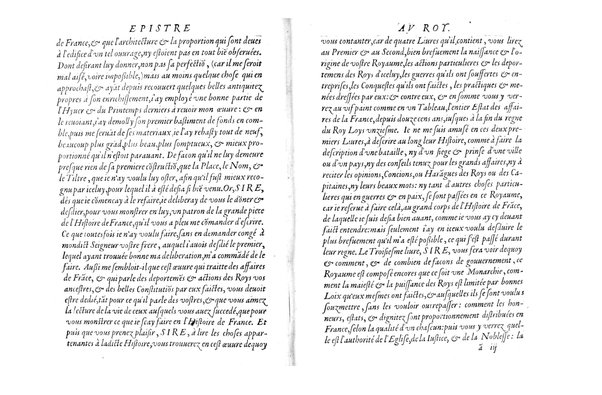 EPISTRE
de France, & que l'architecture & la proportion qui sont deues
à l'edifice d'vn tel ouurage, ny estoient pas en tout biē obseruées.
Dont desirant luy donner, non pas sa perfectiō, (car il me seroit
mal aisé, voire impossible,) mais au moins quelque chose qui en
approchast, & ayāt depuis recouuert quelques belles antiquitez
propres à son enrichissement, i'ay employé vne bonne partie de
l'Hyuer & du Printemps derniers à reuoir mon œuure : & en
le reuoiant, i'ay demoly mon premier bastiment de fonds en com-
ble, puis me seruāt de ses materiaux, ie l'ay rebasty tout de neuf,
beaucoup plus grād, plus beau, plus somptueux, & mieux pro-
portionné qu'il n'estoit parauant. De façon qu'il ne luy demeure
presque rien de sa premiere cōstructiō, que la Place, le Nom, &
le Tiltre, que ie n'ay voulu luy oster, afin qu'il fust mieux reco-
gnu par iceluy, pour lequel il a esté desia si biē venu. Or, SIRE,
dés que ie cōmencay à le refaire, ie deliberay de vous le dōner &
desdier, pour vous monstrer en luy, vn patron de la grande piece
de l'Histoire de France, qu'il vous a pleu me commander de faire.
Ce que toutesfois ie n'ay voulu faire, sans en demander congé à
mondit Seigneur vostre frere, auquel l'auois desdié le premier,
lequel ayant trouuée bonne ma deliberation, m'a cōmādé de le
faire. Aussi me sembloit-il que cest œuure qui traitte des affaires
de Frāce, & qui parle des deportemēs & actions des Roys voz
ancestres, & des belles Constitutiōs par eux faictes, vous deuoit
estre dedié, tāt pour ce qu'il parle des vostres, & que vous aimez
la lecture de la vie de ceux ausquels vous auez succedé, que pour
vous monstrer ce que ie sçay faire en l'Histoire de France. Et
puis que vous prenez plaisir, SIRE, à lire les choses appar-
tenantes à ladicte Histoire, vous trouuerez en cest œuure dequoy
AV ROY.
vous contanter, car de quatre Liures qu'il contient, vous lirez
au Premier & au Second, bien brefuement la naissance & l'o-
rigine de vostre Royaume, les actions particulieres & les depor-
temens des Roys d'iceluy, les guerres qu'ils ont souffertes & en-
treprises, les Conquestes qu'ils ont faictes, les practiques & me-
nées dressées par eux : & contre eux, & en somme vous y ver-
rez au vif paint comme en vn Tableau, l'entier Estat des affai-
res de la France, depuis douze cens ans, iusques à la fin du regne
du Roy Loys vnziesme. Ie ne me suis amusé en ces deux pre-
miers Liures, à descrire au long leur Histoire, comme à faire la
description d'vne iournée, ny d'vn siege & prinse d'vne ville
ou d'vn pays, ny des conseils tenuz pour les grands affaires, ny à
reciter les opinions, Concions, ou Harāgues des Roys ou des Ca-
pitaines, ny leurs beaux mots : ny tant d'autres choses particu-
lieres qui en guerres & en paix, se sont passées en ce Royaume,
car ie reserue à faire cela, au grand corps de l'Histoire de Frāce,
de laquelle ie suis desia bien auant, comme ie vous ay cy deuant
faict entendre : mais seulement i'ay en iceux voulu desduire le
plus brefuement qu'il m'a esté possible, ce qui s'est passé durant
leur regne. Le Troisiesme liure, SIRE, vous fera voir dequoy
& comment, & de combien de facons de gouuernement, ce
Royaume est composé encores que ce soit vne Monarchie, com-
ment la maiesté & la puissance des Roys est limitée par bonnes
Loix qu'eux mesmes ont faictes, & ausquelles ils se sont voulus
soubmettre, sans les vouloir outrepasser : comment les hon-
neurs, estats, & dignitez sont proportionnement distribuées en
France, selon la qualité d'vn chascun : puis vous y verrez quel-
le est l'authorité de l'Eglise, de la Iustice, & de la Noblesse : la
ã iij